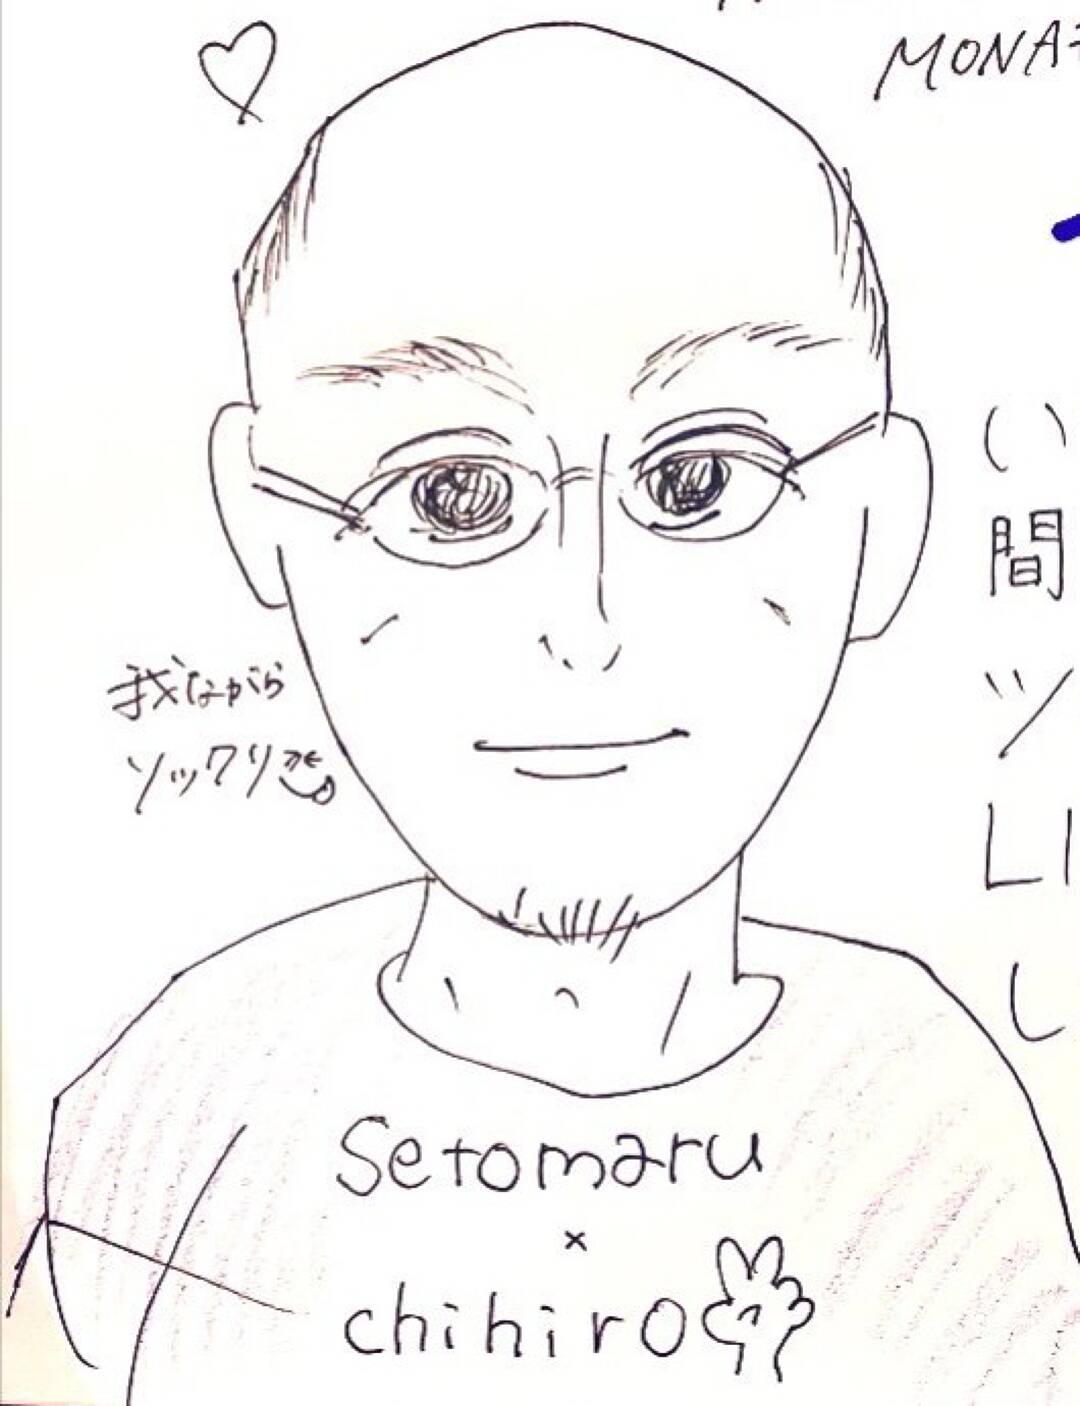 MONA
我ながら
ソックリ
い
間
ツ
し
Setomaru
×
chihiro